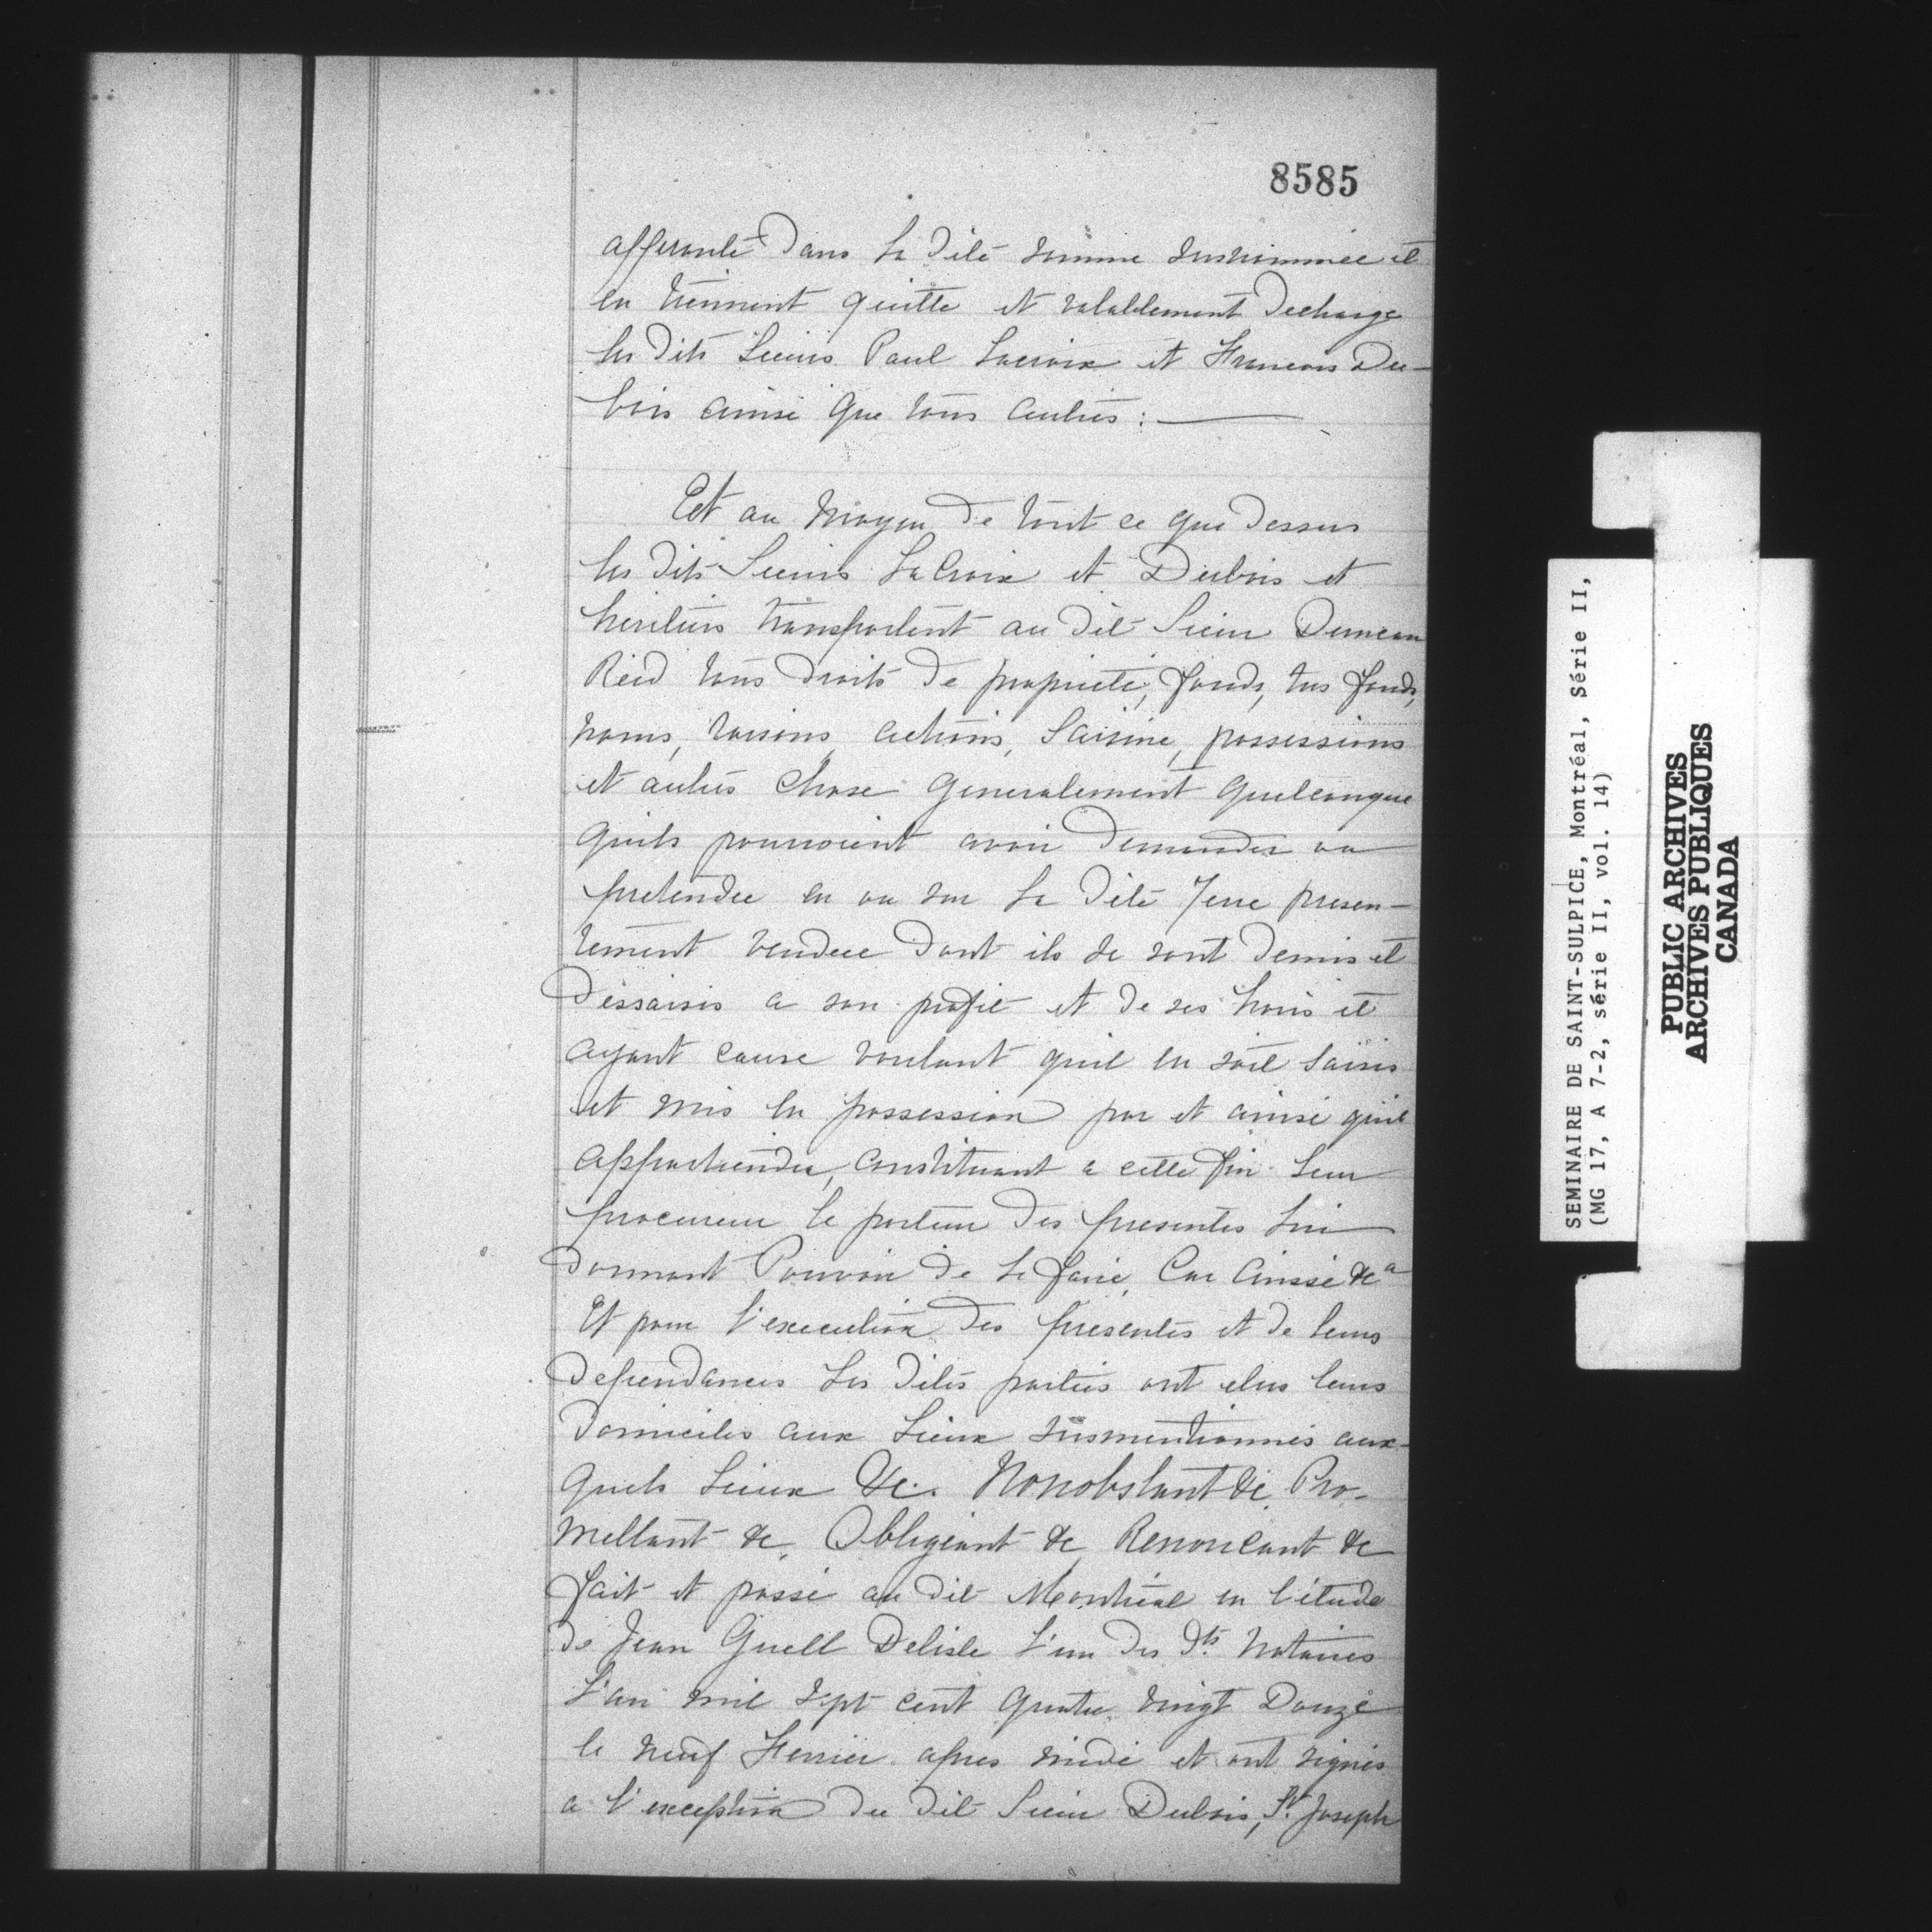 8585
afferente dans la dite somme susnommée et
en tiennent quitte et valablement decharge
les dits Sieurs Paul Lacroix et Francois Du-
bois ainsi que tous autres :
Et au moyen de tout ce que dessus
les dits Sieurs LaCroix et Dubois et
heritiers transportent au dit Sieur Duncan
Reid tous droits de propriété, fonds, tres fonds,
noms, raisons, actions, Saisine, possessions
et autres Chose Generalement Quelconque
quils pourroient avoir demander ou
pretendre en ou sur la dite Terre presen-
tement vendue dont ils se sont demis et
dessaisis a son profit et de ses hoirs et
ayant cause voulant quil en soit Saisis
et mis en possession par et ainsi quil
appartiendra, constituant a cette fin leur
procureur le porteur des presentes lui
donnant Pouvoir de le faire, Car Ainssi &a
Et pour l'execution des presentes et de leurs
dependances Les dites parties ont elus leurs
domiciles aux Lieux susmentionnés aux-
quels Lieux &c. Nonobstant &c. Pro-
mettant &c, Obligeant &c Renoncant &c
fait et passé au dit Montréal en l'étude
de Jean Guell Delisle l'un des dts. Notaires
l'an mil sept cent quatre vingt Douze
le neuf Fevrier apres midi et ont signés
a l'exception du dit Sieur Dubois, Sr. Joseph
SEMINAIRE DE SAINT-SULPICE, Montréal, Série II,
(MG 17, A 7-2, série II, vol. 14)
PUBLIC ARCHIVES
ARCHIVES PUBLIQUES
CANADA